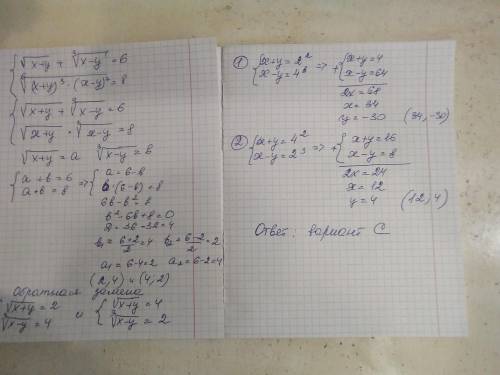 { √x+y + ³√x-y = 6
{ ⁶√(x+y)³ · (x-y)² = 8
{ √x+y + ³√x-y = 6
{ √x+y · ³√x-y = 8
√x+y = a ³√x-y = b
{ a + b = 6 => { a = 6-b
{ a·b = 8 b·(6-b) = 8
6b - b² = 8
b² - 6b + 8 = 0
D = 36 - 32 = 4
b₁ = (6+2)/2 = 4 b₂ = (6-2)/2 = 2
a₁ = 6-4=2 a₂ = 6-2=4
(2,4) и (4,2)
Обратная замена
√x+y = 2 и { √x+y = 4
³√x-y = 4 { ³√x-y = 2
① { x+y = 2² => + { x+y = 4
{ x-y = 4³ { x-y = 64
2x = 68
x = 34
y = -30 (34,-30)
② { x+y = 4² => + { x+y = 16
{ x-y = 2³ { x-y = 8
2x = 24
x = 12
y = 4 (12,4)
Ответ: вариант C